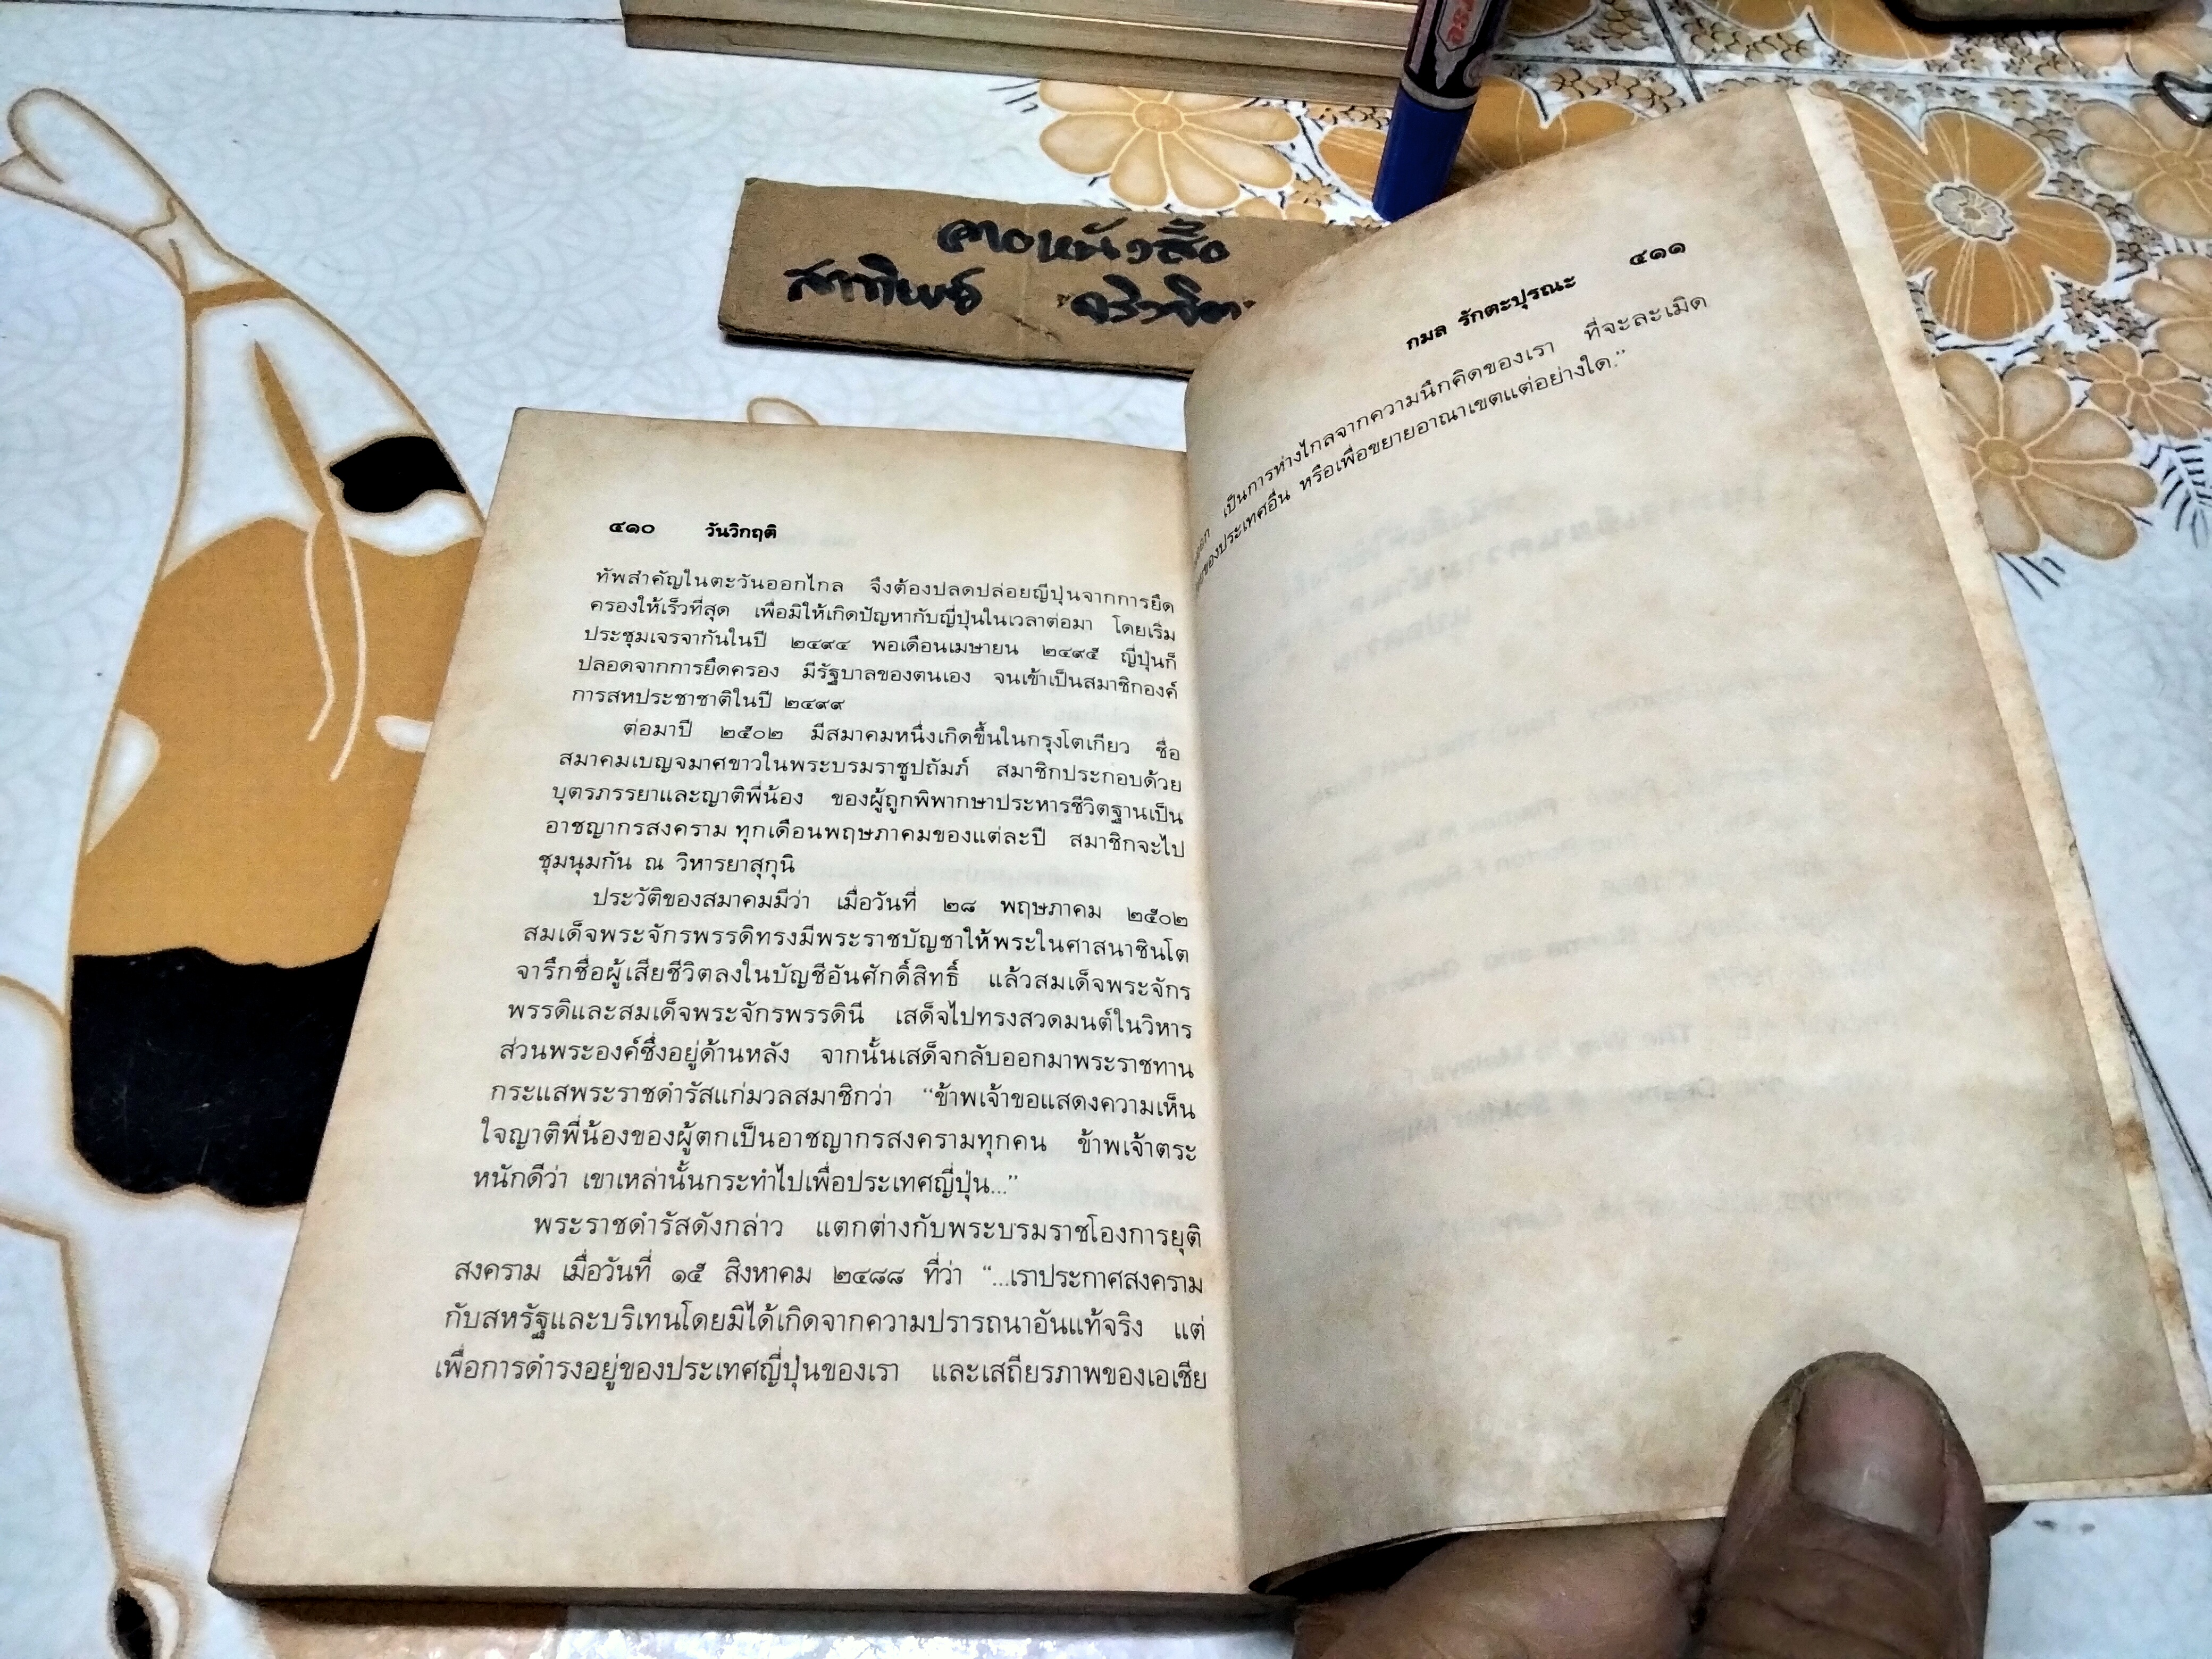 คาอหนังสือ
๔๑๐ วันวิกฤติ
ทัพสำคัญในตะวันออกไกล จึงต้องปลดปล่อยญี่ปุ่นจากการยึด
ครองให้เร็วที่สุด เพื่อมิให้เกิดปัญหากับญี่ปุ่นในเวลาต่อมา โดยเริ่ม
ประชุมเจรจากันในปี ๒๔๙๔ พอเดือนเมษายน ๒๔๙๕ ญี่ปุ่นก็
ปลอดจากการยึดครอง มีรัฐบาลของตนเอง จนเข้าเป็นสมาชิกองค์
การสหประชาชาติในปี ๒๔๙๙
ต่อมาปี ๒๕๐๒ มีสมาคมหนึ่งเกิดขึ้นในกรุงโตเกียว ชื่อ
สมาคมเบญจมาศขาวในพระบรมราชูปถัมภ์ สมาชิกประกอบด้วย
บุตรภรรยาและญาติพี่น้อง ของผู้ถูกพิพากษาประหารชีวิตฐานเป็น
อาชญากรสงคราม ทุกเดือนพฤษภาคมของแต่ละปี สมาชิกจะไป
ชุมนุมกัน ณ วิหารยาสุกุนิ
ประวัติของสมาคมมีว่า เมื่อวันที่ ๒๘ พฤษภาคม ๒๕๐๒
สมเด็จพระจักรพรรดิทรงมีพระราชบัญชาให้พระในศาสนาชินโต
จารึกชื่อผู้เสียชีวิตลงในบัญชีอันศักดิ์สิทธิ์ แล้วสมเด็จพระจักร
พรรดิและสมเด็จพระจักรพรรดินี เสด็จไปทรงสวดมนต์ในวิหาร
ส่วนพระองค์ซึ่งอยู่ด้านหลัง จากนั้นเสด็จกลับออกมาพระราชทาน
กระแสพระราชดำรัสแก่มวลสมาชิกว่า “ข้าพเจ้าขอแสดงความเห็น
ใจญาติพี่น้องของผู้ตกเป็นอาชญากรสงครามทุกคน ข้าพเจ้าตระ
หนักดีว่า เขาเหล่านั้นกระทำไปเพื่อประเทศญี่ปุ่น...”
พระราชดำรัสดังกล่าว แตกต่างกับพระบรมราชโองการยุติ
สงคราม เมื่อวันที่ ๑๕ สิงหาคม ๒๔๘๘ ที่ว่า “...เราประกาศสงคราม
กับสหรัฐและบริเทนโดยมิได้เกิดจากความปรารถนาอันแท้จริง แต่
เพื่อการดำรงอยู่ของประเทศญี่ปุ่นของเรา และเสถียรภาพของเอเชีย
กมล รักตะปุรณะ ๔๑๑
เป็นการห่างไกลจากความนึกคิดของเรา ที่จะละเมิด
ของประเทศอื่น หรือเพื่อขยายอาณาเขตแต่อย่างใด.”